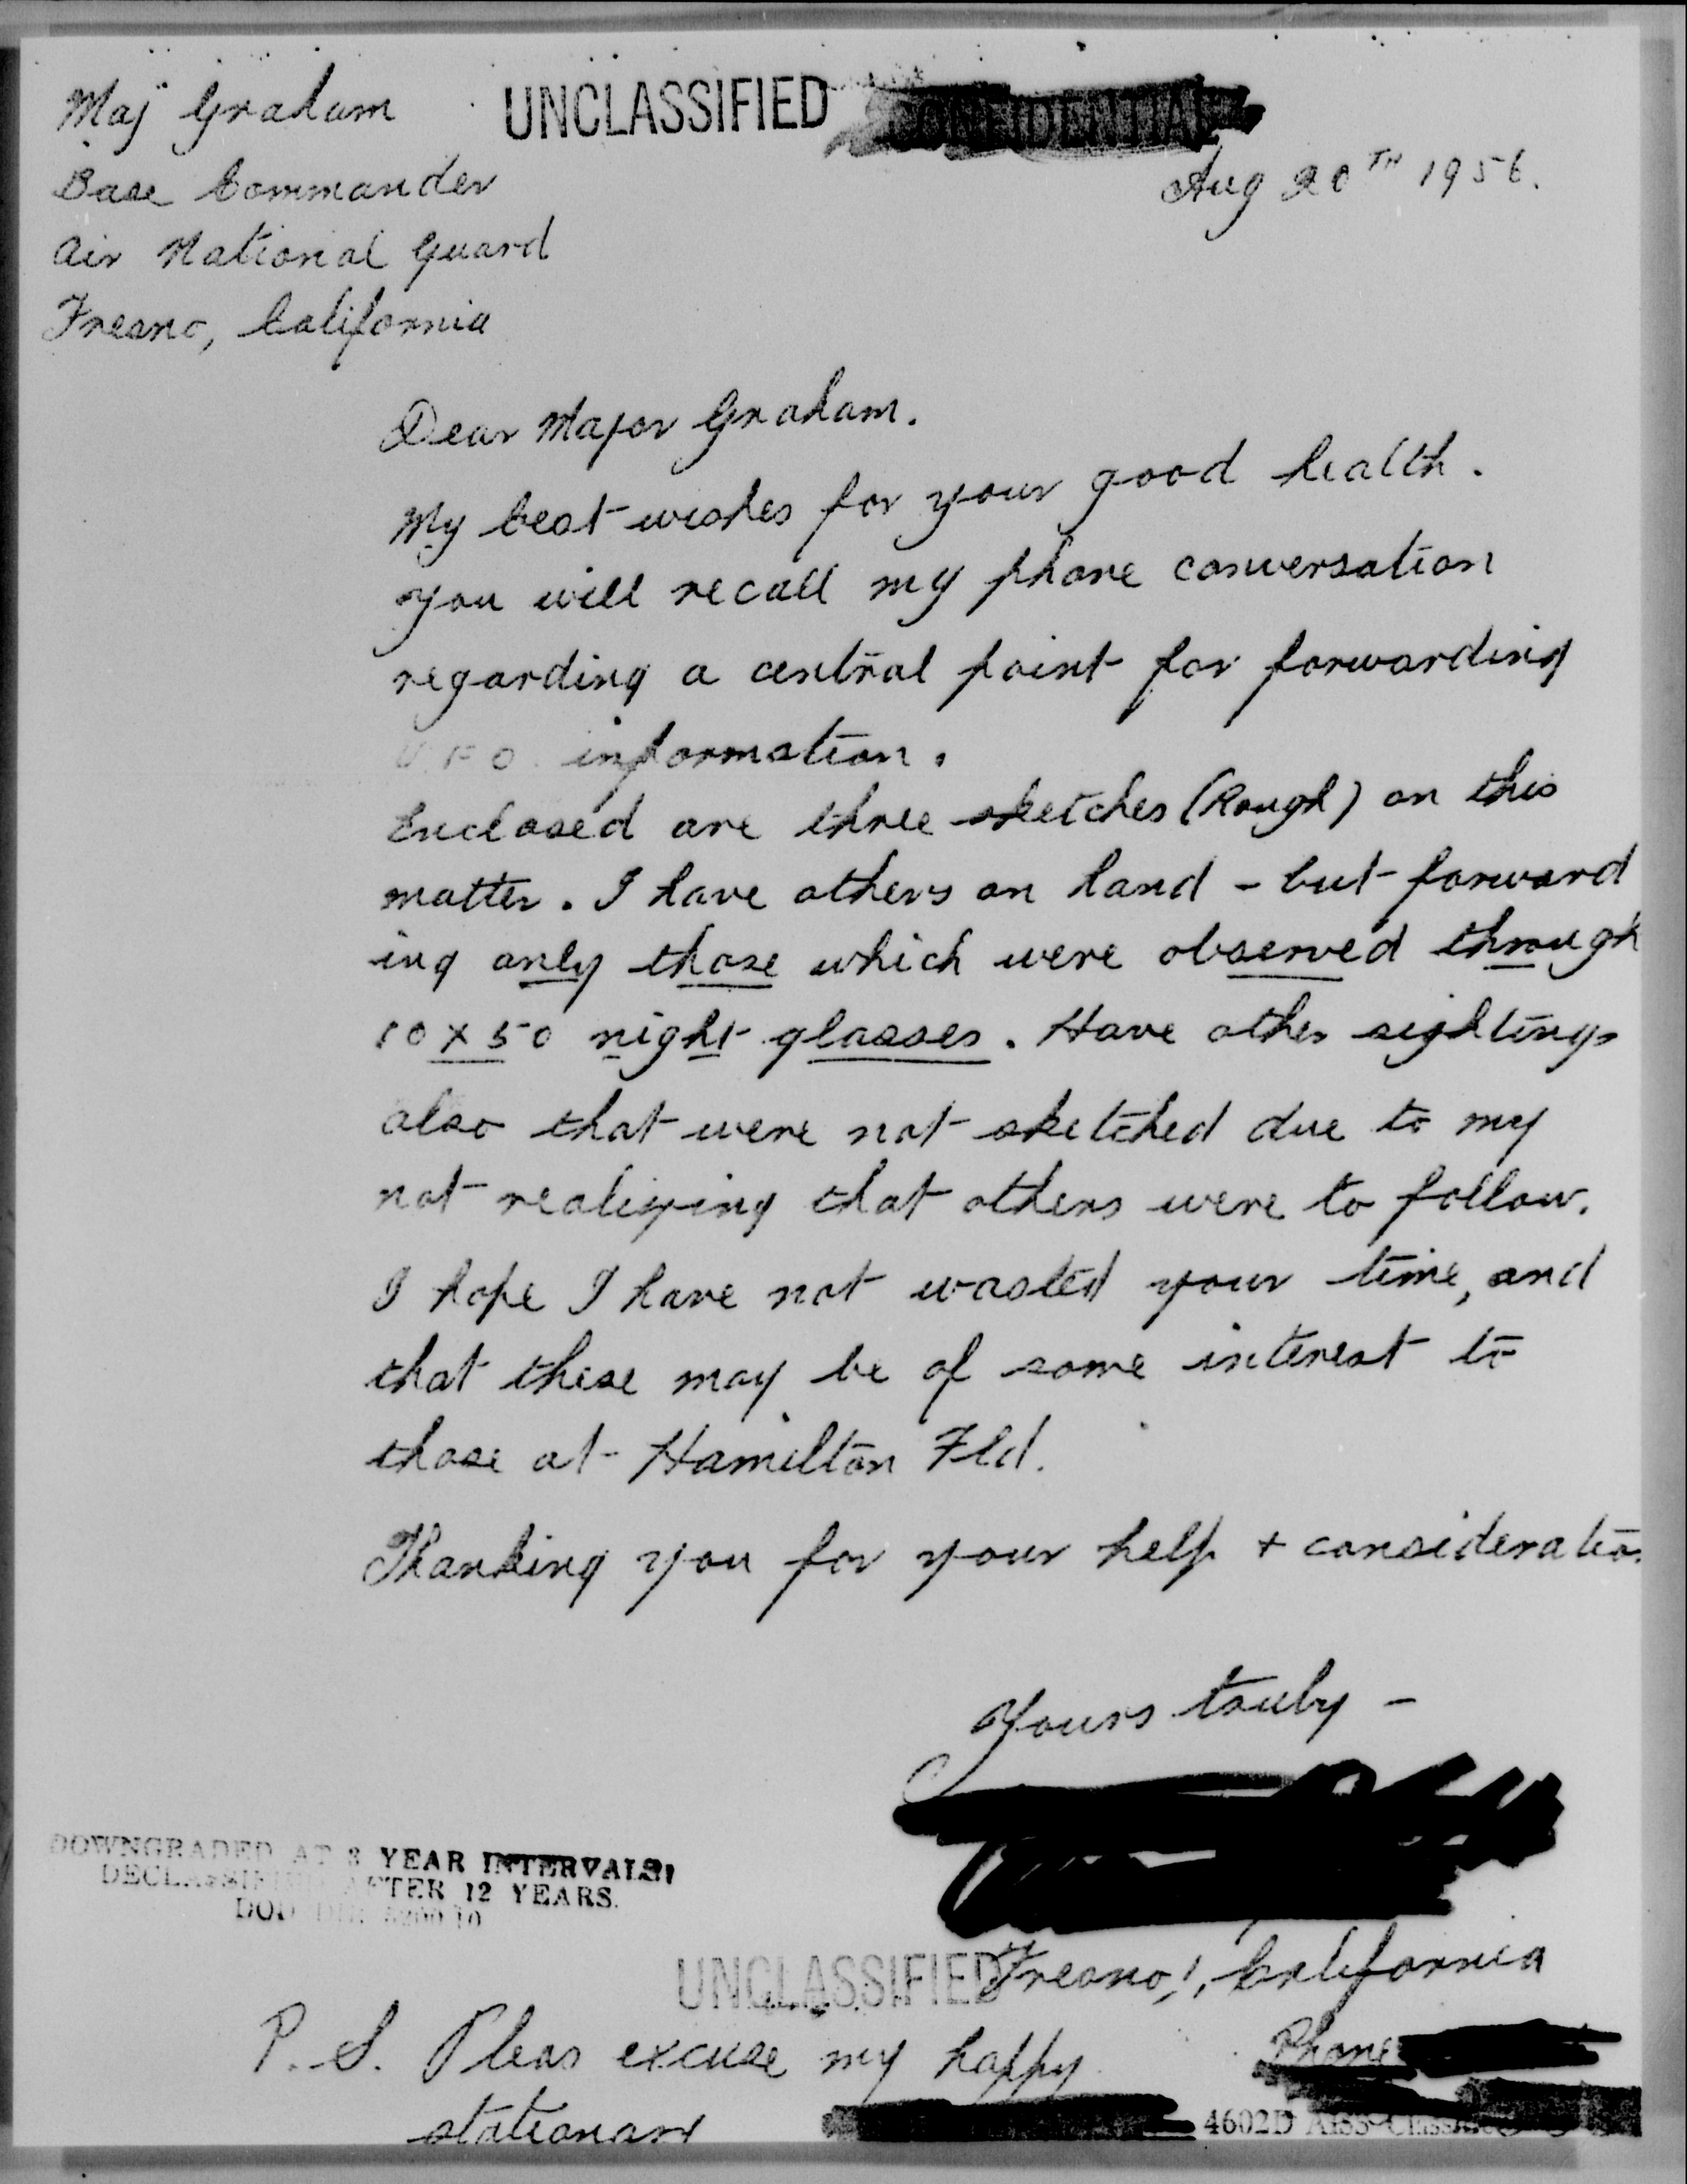 Maj Graham
UNCLASSIFIED CONFIDENTIAL
Base Commander
Aug 20TH 1956.
Air National Guard
Fresno, California
Dear Major Graham.
My best wishes for your good health.
You will recall my phone conversation
regarding a central point for forwarding
U.F.O. information.
Enclosed are three sketches (Rough) on this
matter. I have others on hand - but forward
ing only those which were observed through
10 x 50 night glasses. Have other sightings
also that were not sketched due to my
not realizing that others were to follow.
I hope I have not wasted your time, and
that these may be of some interest to
those at Hamilton Fld.
Thanking you for your help + consideration
Yours truly -
DOWNGRADED AT 3 YEAR INTERVALS;
DECLASSIFIED AFTER 12 YEARS.
DOD DIR 5200.10
UNCLASSIFIED
Fresno, California
P.S. Pleas excuse my happy
Phone
stationary
4602D AISS